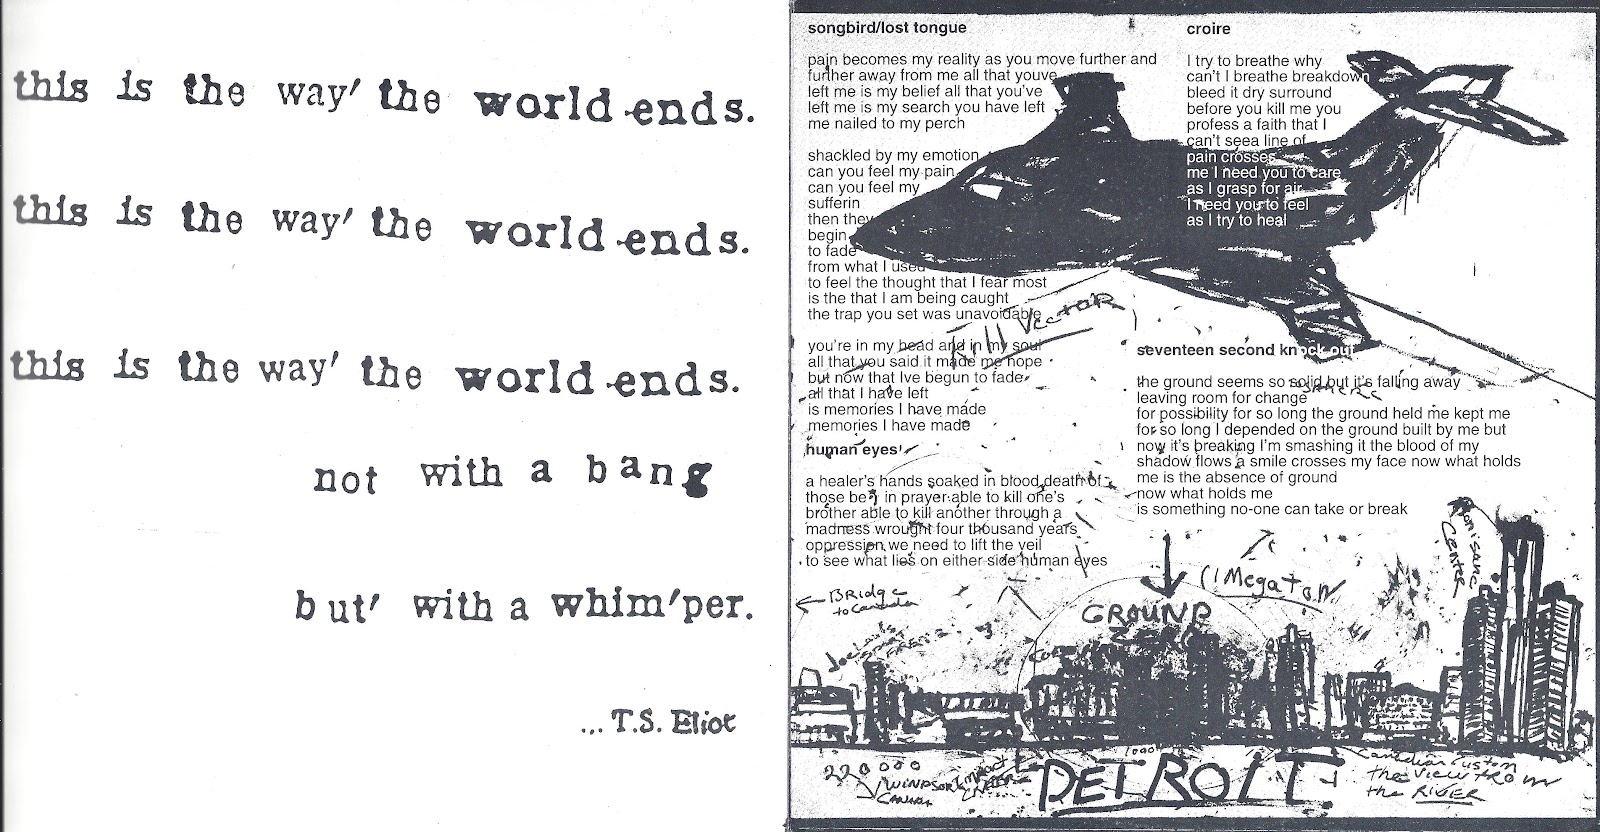 this is the way' the world ends.
this is the way' the world ends.
this is the way' the world ends.
not with a bang
but' with a whim'per.
...T.S. Eliot
songbird/lost tongue
pain becomes my reality as you move further and
further away from me all that youve
left me is my belief all that you've
left me is my search you have left
me nailed to my perch
shackled by my emotion
can you feel my pain
can you feel my
sufferin
then they
begin
to fade
from what I used
to feel the thought that I fear most
is the that I am being caught
the trap you set was unavoidable
you're in my head and in my soul
all that you said it made me hope
but now that Ive begun to fade
all that I have left
is memories I have made
memories I have made
human eyes
a healer's hands soaked in blood death of
those be in prayer able to kill one's
brother able to kill another through a
madness wrought four thousand years
oppression we need to lift the veil
to see what lies on either side human eyes
croire
I try to breathe why
can't I breathe breakdown
bleed it dry surround
before you kill me you
profess a faith that I
can't seea line of
pain crosses
me I need you to care
as I grasp for air
I need you to feel
as I try to heal
seventeen second knock out
the ground seems so solid but it's falling away
leaving room for change
for possibility for so long the ground held me kept me
for so long I depended on the ground built by me but
now it's breaking I'm smashing it the blood of my
shadow flows a smile crosses my face now what holds
me is the absence of ground
now what holds me
is something no-one can take or break
Kill Vector
Renisanc
Center
1 Megaton
GROUND
ZERO
BRidge
to Canada
220000
WINDSOR
CANADA
Impact
CRATER
DETROIT
Canadian Custom
the View FROM
the RIVER